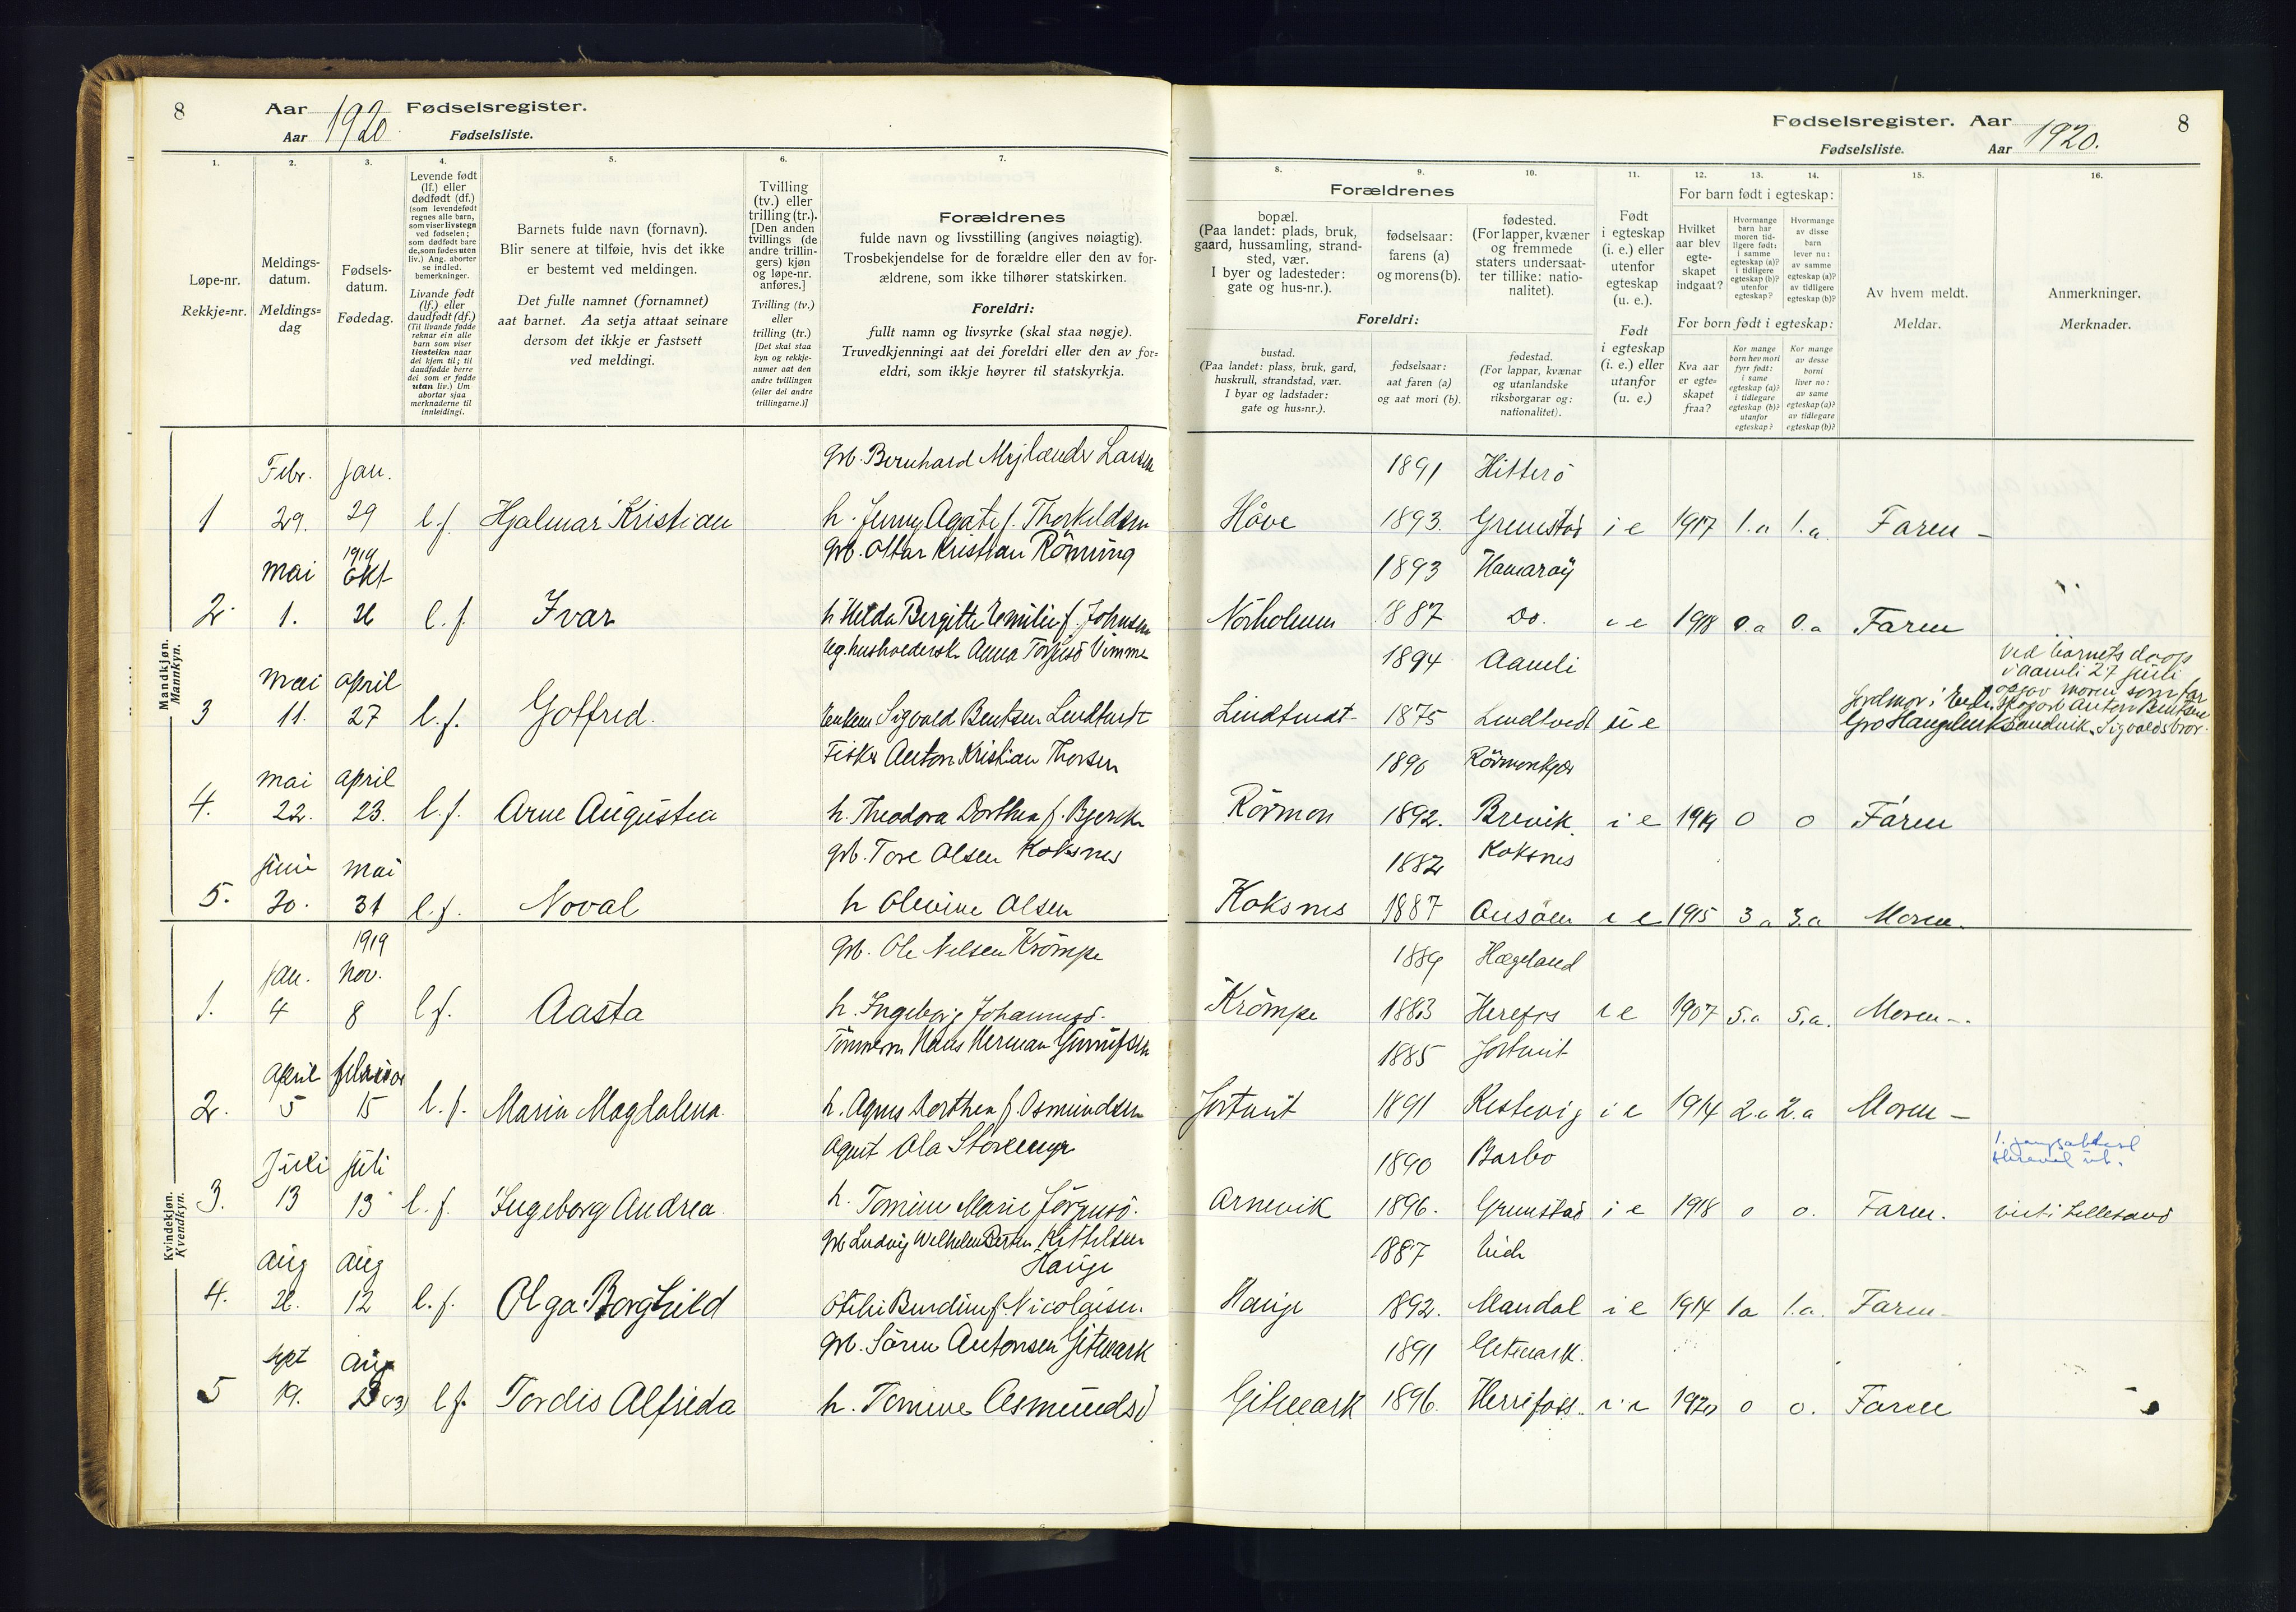 8 Aar 1920 Fødselsregister.
Aar Fødselsliste.
1. 2. 3. 4. 5. 6. 7.
Løpe-nr.
Rekkje=nr.
Meldings-
datum.
Meldings=
dag
Fødsels-
datum.
Fødedag.
Levende født
(lf.) eller
dødfødt (df.)
(som levendefødt
regnes alle barn,
som viser livstegn
ved fødselen;
som dødfødt bare
de, som fødes uten
liv.) Ang. aborter
se indled.
bemerkninger.
Livande født
(lf.) eller
daudfødt (df.)
(Til livande fødde
reknar ein alle
barn som viser
livsteikn naar
dei kjem til; til
daudfødde berre
dei som er fødde
utan liv.) Um
abortar sjaa
merknaderne til
innleidingi.
Barnets fulde navn (fornavn).
Blir senere at tilføie, hvis det ikke
er bestemt ved meldingen.
Det fulle namnet (fornamnet)
aat barnet. Aa setja attaat seinare
dersom det ikkje er fastsett
ved meldingi.
Tvilling
(tv.) eller
trilling (tr.).
[Den anden
tvillings (de
andre trillin-
gers) kjøn
og løpe-nr.
anføres.]
Tvilling (tv.)
eller
trilling (tr.)
[Det skal staa
kyn og rekkje-
numer aat den
andre tvillingen
(eller dei andre
trillingarne.)]
Forældrenes
fulde navn og livsstilling (angives nøiagtig).
Trosbekjendelse for de forældre eller den av for-
ældrene, som ikke tilhører statskirken.
Foreldri:
fullt namn og livsyrke (skal staa nøgje).
Truvedkjenningi aat dei foreldri eller den av for=
eldri, som ikkje høyrer til statskyrkja.
Fødselsregister. Aar 1920. 8
Fødselsliste. Aar
8. 9. 10. 11. 12. 13. 14. 15. 16.
Forældrenes
bopæl.
(Paa landet: plads, bruk,
gaard, hussamling, strand-
sted, vær.
I byer og ladesteder:
gate og hus-nr.).
fødselsaar:
farens (a)
og morens (b).
fødested.
(For lapper, kvæner
og fremmede
staters undersaat-
ter tillike: natio-
nalitet).
Foreldri:
bustad.
(Paa landet: plass, bruk, gard,
huskrull, strandstad, vær.
I byar og ladstader:
gate og hus=nr.).
fødselsaar:
aat faren (a)
og aat mori (b).
fødestad.
(For lappar, kvænar
og utanlandske
riksborgarar og:
nationalitet).
Født
i egteskap
(i. e.) eller
utenfor
egteskap
(u. e.).
Født
i egteskap
(i. e.) eller
utanfor
(u. e.)
For barn født i egteskap:
Hvilket
aar blev
egte-
skapet
indgaat?
Hvormange
barn har
moren tid-
ligere født:
i samme
egteskap (a)?
i tidligere
egteskap (b)?
utenfor
egteskap?
Hvormange
av disse
barn
lever nu:
av samme
egteskap (a)?
av tidligere
egteskap (b)?
For born født i egteskap:
Kva aar
er egte=
skapet
fraa?
Kor mange
born hev mori
fyrr født:
i same
egteskap (a)?
i tidlegare
egteskap (b)?
utanfor
egteskap?
Kor mange
av desse
borni
liver no:
av same
egteskap (a)?
av tidlegare
egteskap (b)?
Av hvem meldt.
Meldar.
Anmerkninger.
Merknader.
Mandkjøn.
Mannkyn.
Febr. Jan. Grb. Bernhard Mejlænder Larsen 1891 Hitterö
1 29. 29 l.f. Hjalmar Kristian h. Jenny Agate f. Thorkildsen Håve 1893. Grimstad i e 1917 1.a 1.a. Faren
1919
mai Okt Grb. Ottar Kristian Rönning 1893 Hamaröy
2 1. 26 l.f. Ivar h Hilda Bergitte Emilie f. Johnsen Nörholmen 1887 Do. i e 1918 0.a 0.a Faren
mai april Ug. husholdersk Anna 1894 Aamli
3 11. 27 l.f. Gotfred. Sigvald Bentsen Lindtvedt Lindtvedt 1875 Lindtvedt u e Jordmor i
ved barnets daap
i Aamli 27 juli
opgav moren som far
Anton Bentsen
Sandvik. Sigvalds bror.
mai april Fisker Anton Kristian Thorsen 1896
4. 22. 23. l.f. Arne August h. Theodora Dorthea f. Bjerck Rörmon 1892. Brevik i e 1919 0 0 Faren
juni mai Grb. Tore Olsen Koksnes 1882 Koksnes
5. 30. 31 l.f. Noval h Olevine Olsen Koksnes 1887 i e 1915 3 a 3.a Moren.
Kvindekjøn.
Kvendkyn.
1919
jan. nov. Grb. Ole Nelsen Krömpe 1889 Hægeland
1. 4 8 l f. Aasta h. Ingeborg Johannesd. Krömpe 1883 Herefos i e 1907 5.a 5.a. Moren
april februar Tömmerm Hans Herman 1885 Jortveit
2. 5 15 l.f. Marie Magdalena. h. Agnes Dorthea f. Osmundsen Jortveit 1891 i e 1914 2.a 2.a Moren
Juli juli Agent Ola Storemyr 1890 Barbo
3. 13 13 l.f. Ingeborg Andrea. h. Tomine Marie Jörgensd. Arnevik 1896. Grimstad i e 1918 0 0. Faren. viet i Lillesand
aug aug Grb Ludvig Wilhelm Berten Kittelsen 1887 Eide
Hauge
4. 26. 12 l.f. Olga Borghild Otelie f. Nicolaisen. Hauge 1892. Mandal i e 1914 1a 1.a. Faren
sept Aug Grb. Sören Antonsen Gitmark 1891 Gitmark.
5 19. 23 l f. Tordis Alfrida h. Tomine Asmundsd Gitmark 1896. Herrefoss. i e 1920 0 0. Faren